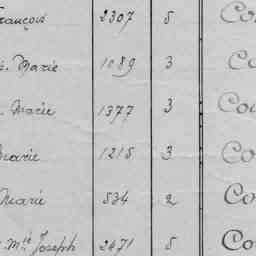 François 2307 5 Co
s. Marie 1089 3 Co
. Marie 1377 3 Cou
Marie 1215 3 Co
Marie 534 2 Co
Mie Joseph 2471 5 Co